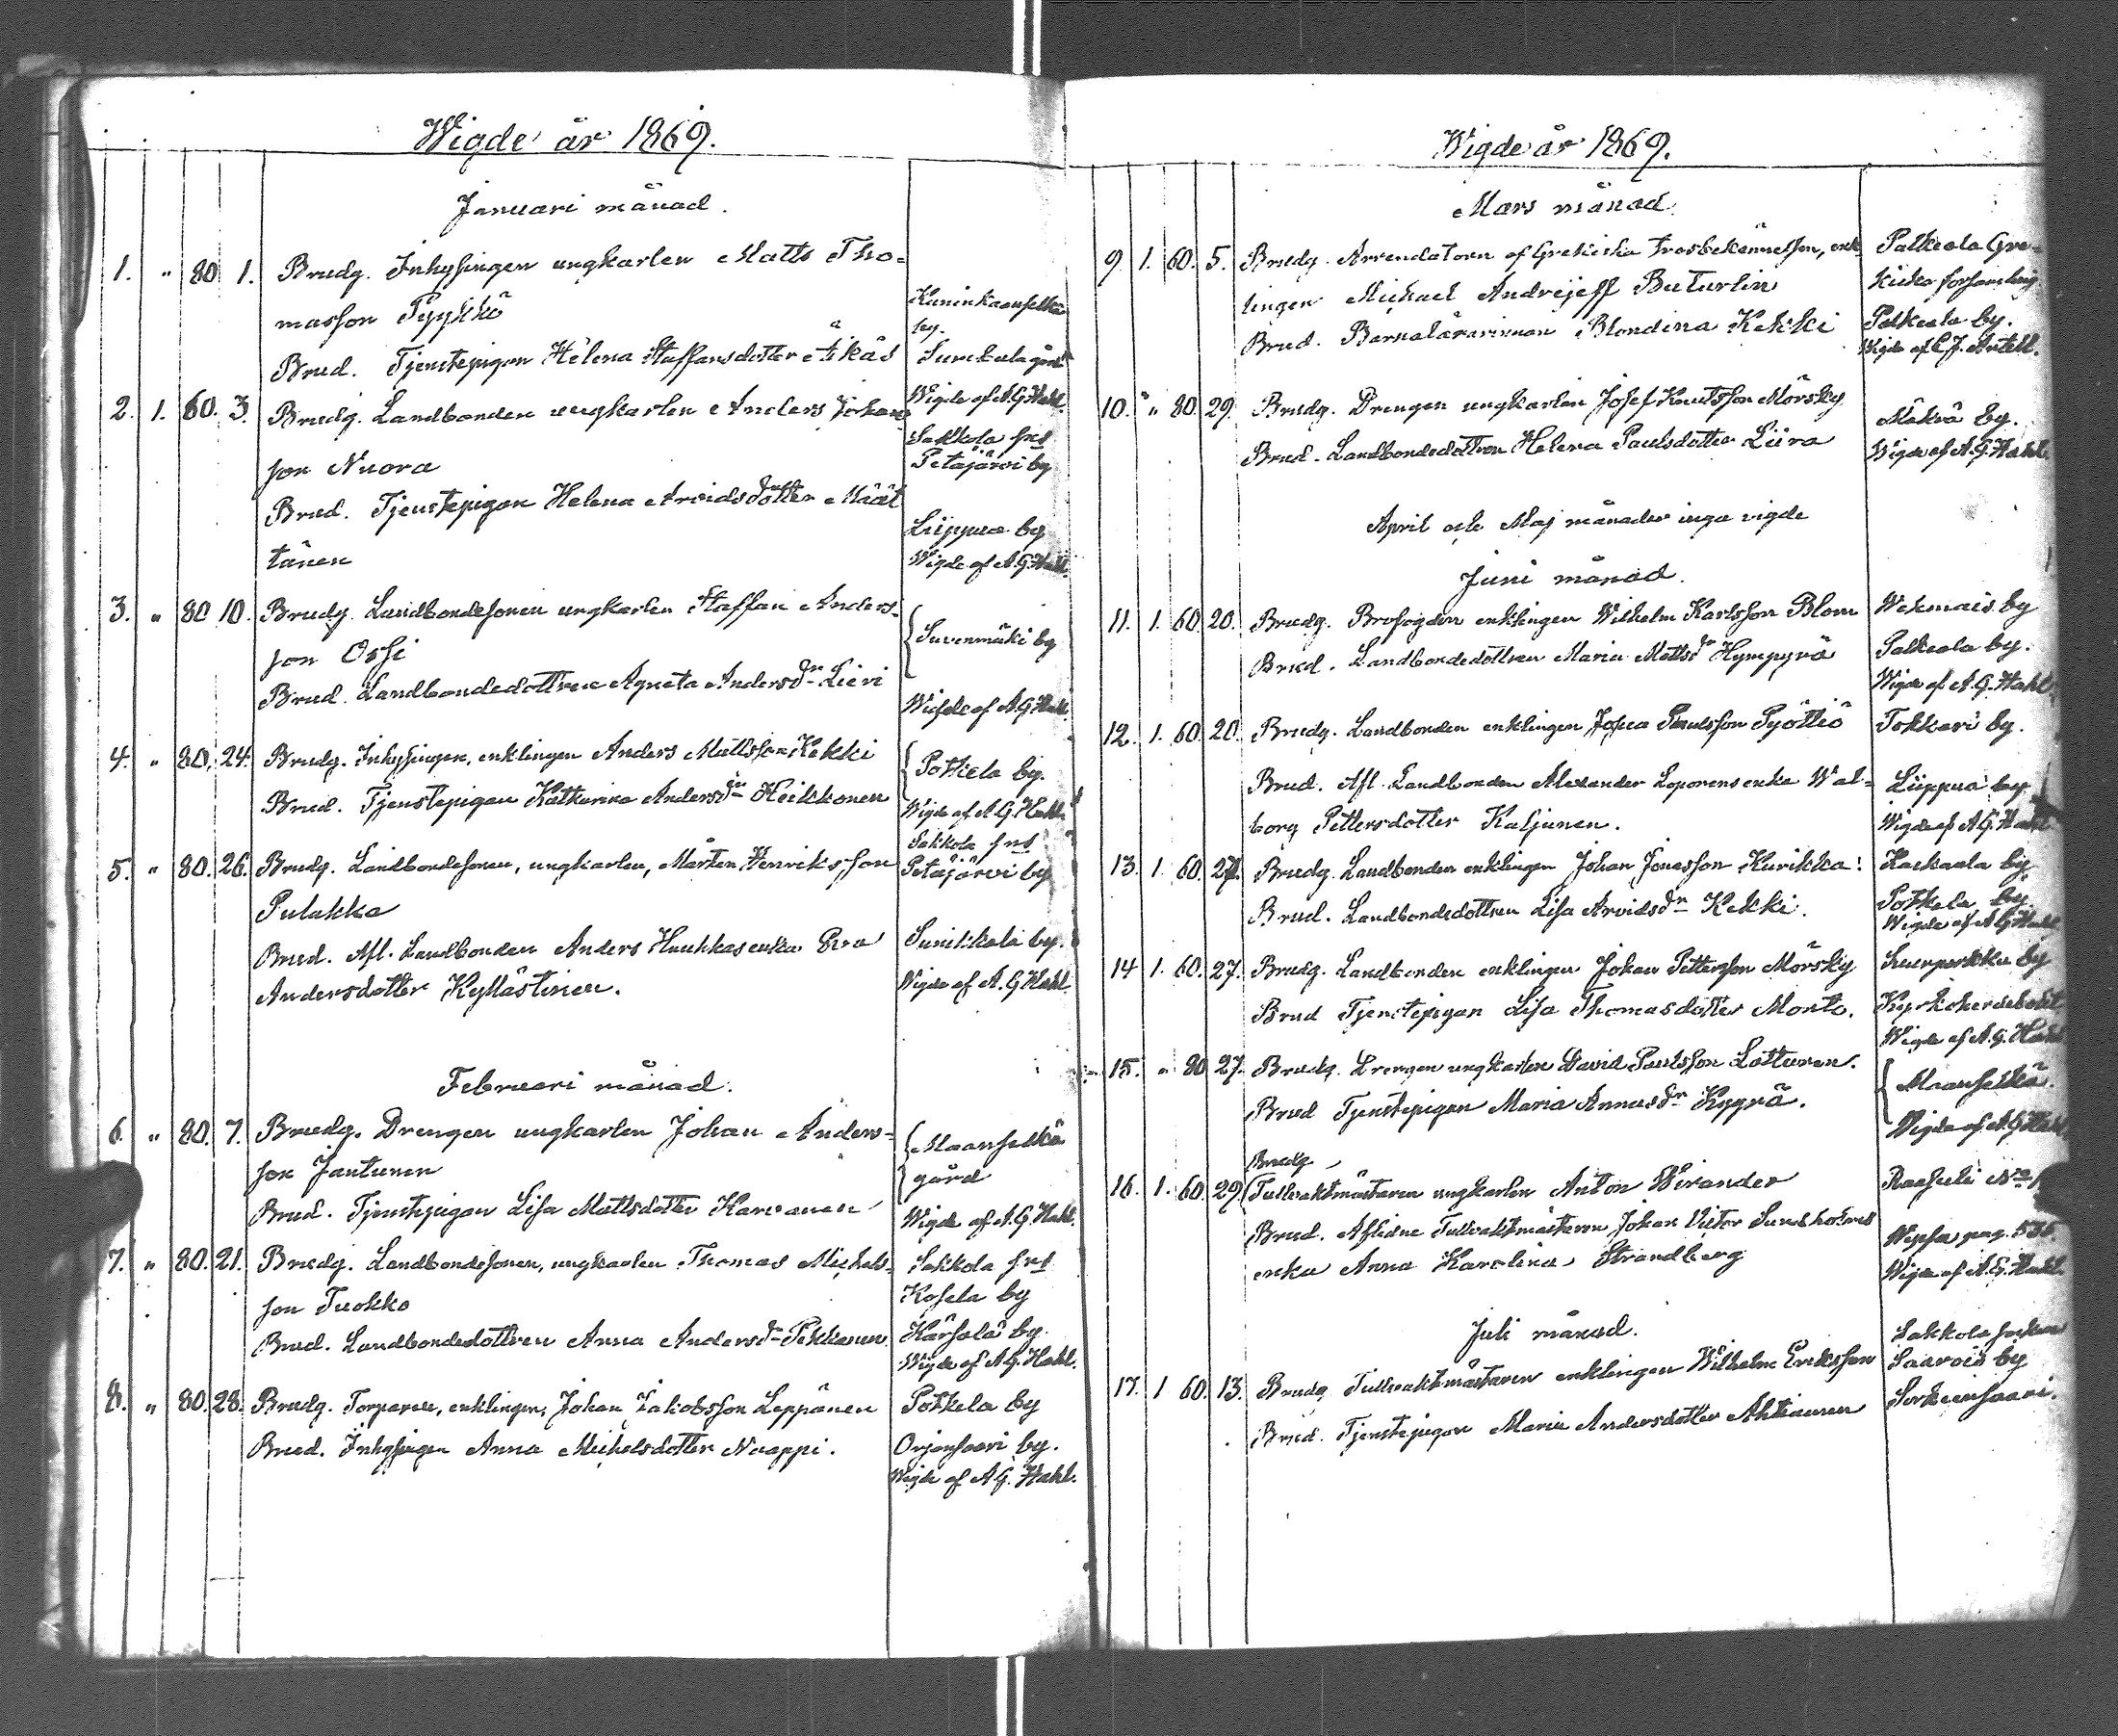 Wigde år 1869.
Januari månad.
1. " 80 1. Brudg. Inhysingen ungkarlen Matts Tho-
masson Pyykkö
Kuninkaanselkä
by.
Brud. Tjenstepigan Helena Staffansdotter Äikäs
Wigde af A G Hahl.
2. 1. 60. 3. Brudg. Landbonden ungkarlen Anders Johans
Sakkola sns
son Nuora
Petäjärvi by
Brud. Tjenstepigan Helena Arvidsdotter Määt
tänen
Liippua by
Wigde af A G Hahl.
3. " 80 10. Brudg. Landbondesonen ungkarlen Staffan Anders-
son Ossi
Suvenmäki by
Brud. Landbondedottren Agneta Andersdr
Wigde af A G Hahl.
4. " 80. 24. Brudg. Inhysingen, enklingen Anders Mattsson Kekki
Potkela by.
Brud. Tjenstepigan Katharina Andersdr Heikkonen
Wigde af A G. Hahl.
Sakkola sns
5. " 80. 26. Brudg. Landbondesonen, ungkarlen, Mårten Henriksson
Petäjärvi by
Pulakka
Brud. Afl. Landbonden Anders Haukkas enka Eva
by.
Andersdotter Kyllästinen.
Wigde af A. G Hahl.
Februari månad.
6. " 80. 7. Brudg. Drengen ungkarlen Johan Anders-
son Jantunen
Maanselkä
gård
Brud. Tjenstepigan Lisa Mattsdotter Karvanen
Wigde af A. G. Hahl.
7. " 80. 21. Brudg. Landbondesonen, ungkarlen Thomas Michels-
Sakkola sns
son Tuokko
Kosela by
Brud. Landbondedottren Anna Andersdr Pekkanen
Kärsälä by.
Wigde af A G. Hahl.
8. " 80. 28. Brudg. Torparen, enklingen, Johan Jakobsson Leppänen
Potkela by
Brud. Inhysingen Anna Michelsdotter Naappi.
Orjansaari by.
Wigde af A G. Hahl.
Wigde år 1869.
Mars månad.
9. 1. 60. 5. Brudg. Arrendatorn af Grekiska trosbekännelsen, enk
Palkeala Gre-
lingen Michael Andrejeff Buturlin
kiska församling
Brud. Barnalärarinnan Blondina Kekki
Palkeala by.
Wigde af C. J. Antell.
10. " 80 29. Brudg. Drengen ungkarlen Josef Knutsson Mörsky
Mäkrä by.
Brud. Landbondedottren Helena Paulsdotter Liira
Wigde af A. G. Hahl.
April och Maj månader inga vigde
Juni månad.
11. 1. 60. 20. Brudg. Brofogden enklingen Wilhelm Karlsson Blom
Wekmais by
Brud. Landbondedottren Maria Mattsdr Hympyrä
Palkeala by.
Wigde af A. G. Hahl.
12. 1. 60. 20. Brudg. Landbonden enklingen Josua Paulsson Pyöttiö
Tokkari by.
Brud. Afl. Landbonden Alexander Loponens enka Wal-
Liippua by
borg Pettersdotter Kaljunen.
Wigde af A G. Hahl
13. 1. 60. 27. Brudg. Landbonden enklingen Johan Jonasson Kurikka.
by
Brud. Landbondedottren Lisa Arvidsdr Kekki.
Potkela by.
Wigde af A G Hahl
14 1. 60. 27. Brudg. Landbonden enklingen Johan Pettersson Mörsky
by
Brud Tjenstepigan Lisa Thomasdotter Monto.
Wigde af A. G. Hahl
15. " 80 27. Brudg. Drengen ungkarlen David Paulsson Lattunen.
Maanselkä.
Brud Tjenstepigan Maria Annasdr Kyyrä.
Wigde af A G Hahl
Brudg.
16. 1. 60. 29. Tullvaktmästaren ungkarlen Anton Wirander
Raasuli No
Brud. Aflidne Tullvaktmästaren Johan Victor Sundholms
enka Anna Karolina Strandberg
Wigde af A. G. Hahl.
Juli månad.
Sakkola socken
17. 1 60. 13. Brudg. Tullvaktmästaren enklingen Wilhelm Eriksson
Saarois by
Brud. Tjenstepigan Maria Andersdotter Ahtiainen